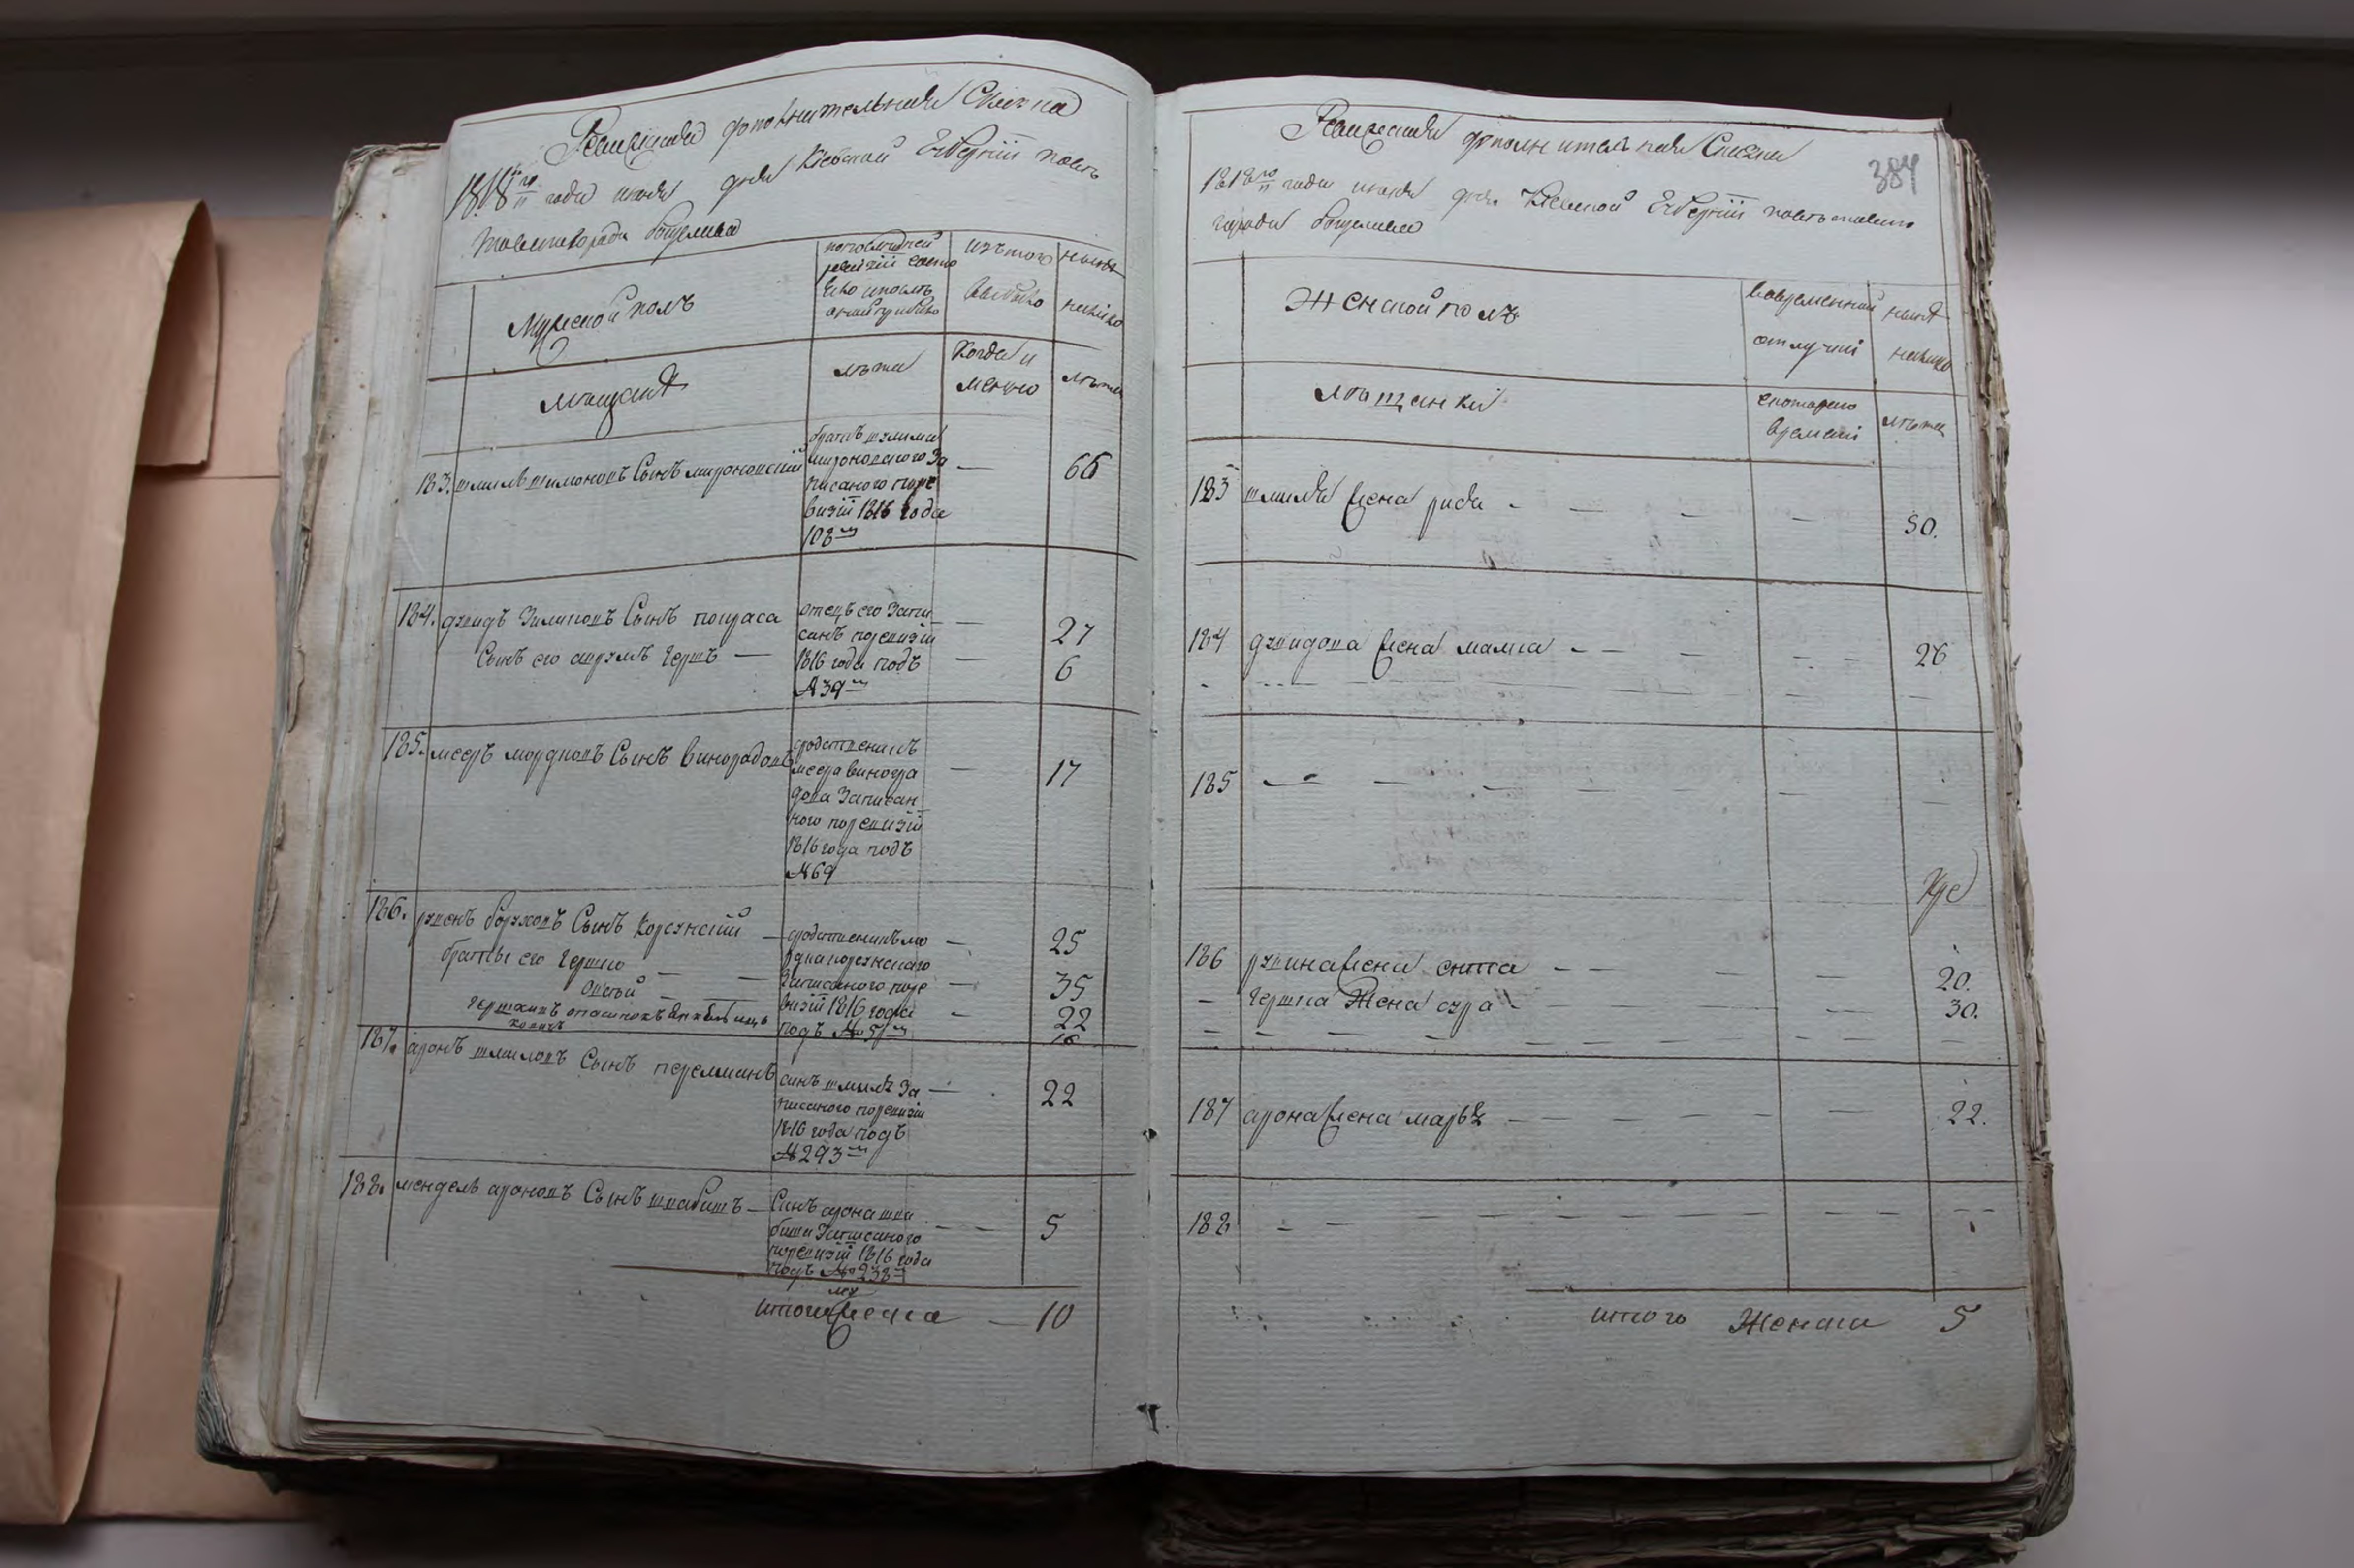 Ревизская дополнительная Сказка
1818го года июня дня Киевской Губернии повѣ
тового города Богуслава
Мужеской полъ
по последней
ревизии состо
яло и после
оной прибыло
изъ того
выбыло
нынѣ
налицо
мещанѣ
лѣта
Когда и
менно
лѣта
183. шмиль шимоновъ Сынъ мироновский
братъ шлиомы
мироновского За
писаного по ре
визии 1816 Года
108м
66
184. дувидъ Зиликовъ Сынъ попраса
Сынъ его аврумъ Гершъ —
отецъ его Запи
санъ по ревизии
1816 года подъ
№ 39м
27
6
185. мееръ мордковъ Сынъ Виноградовъ
сродственникъ
меера виногра
дова Записан
ного по ревизии
1816 года подъ
№ 69
17
186. рувенъ боруховъ Сынъ Корсунский
братья его Гершко — —
овсей — —
сродственникъ мо
рдка корсунскаго
Записаного по ре
визии 1816 года
подъ № 51м
25
35
22
18
187. аронъ шмиловъ Сынъ перелманъ
синъ шмиля За
писаного по ревизии
1816 года подъ
№ 293м
22
188. мендель ароновъ Сынъ шкабишъ —
Синъ арона шка
биша Записаного
по ревизии 1816 года
подъ № 238м
5
итого мужеска — 10
384
Ревизская дополнительная Сказка
1818го года июня дня Киевской Губернии повѣтового
города Богуслава
Женской полъ
во временной
отлучки
нынѣ
налицо
мѣщанки
с которого
времени
лѣта
183 шмиля Жена рися - — — — 50.
184 дувидова Жена малка - — — 26
185 — — — — —
186 рувина Жена ситта — — — 20.
— Гершка Жена сура — — 30.
187 арона Жена марья — — — 22.
188 - — — — — —
итого Женска 5